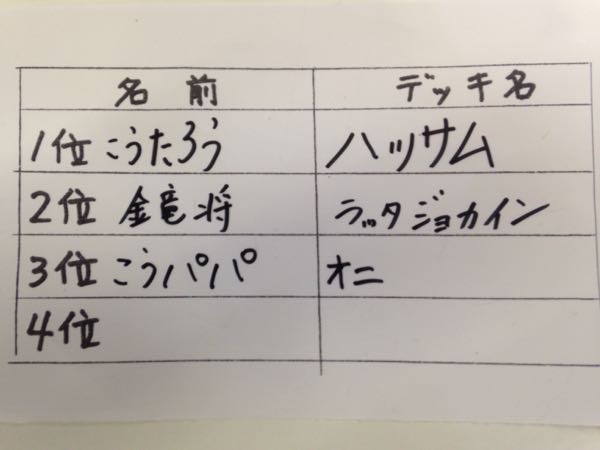 名前 デッキ名
1位 こうたろう ハッサム
2位 金竜将 ラッタジョカイン
3位 こうパパ オニ
4位